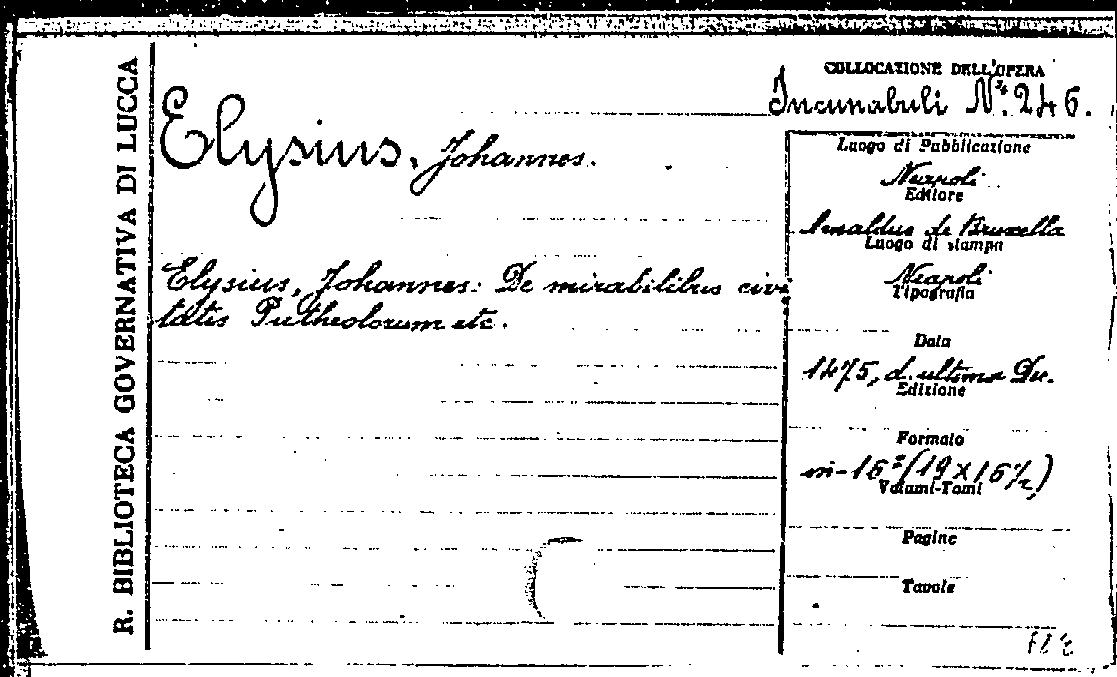 R. BIBLIOTECA GOVERNATIVA DI LUCCA
Elysius, Johannes.
Elysius, Johannes: De mirabilibus civi
tatis Putheolorum etc.
COLLOCAZIONE DELL'OPERA
Incunabuli N.º 246.
Luogo di Pubblicazione
Neapoli
Editore
Arnaldus de Bruxella
Luogo di stampa
Neapoli
Tipografia
Data
1475, d. ultima Dec.
Edizione
Formato
in-16º (19 x 16½)
Volumi-Tomi
Pagine
Tavole